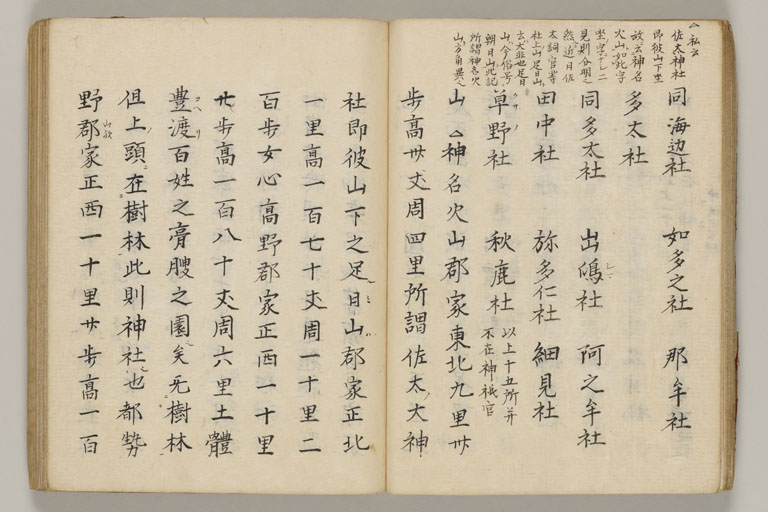 △私云
佐太神社
即彼山下坐
故云神名
火山如此字
見則分明
然近日佐
太詞官等
社上山足日山
云大非也足日
山今俗号
朝日山此記
所謂神名火
山方角異
同海边社 如多之社 那牟社
多太社
同多太社 出嶋社 阿之牟社
田中社 弥多仁社 細見社
草野社 秋鹿社 以上十五所并
不在神祇官
山 △神名火山郡家東北九里卅
步高卅丈周四里所謂佐太大神
社即彼山下之足日山郡家正北
一里高一百七十丈周一十里二
百步女心高野郡家正西一十里
廿步高一百八十丈周六里土體
豊渡百姓之膏腴之園矣无樹林
但上頭在樹林此則神社也都勢
野郡家正西一十里廿步高一百